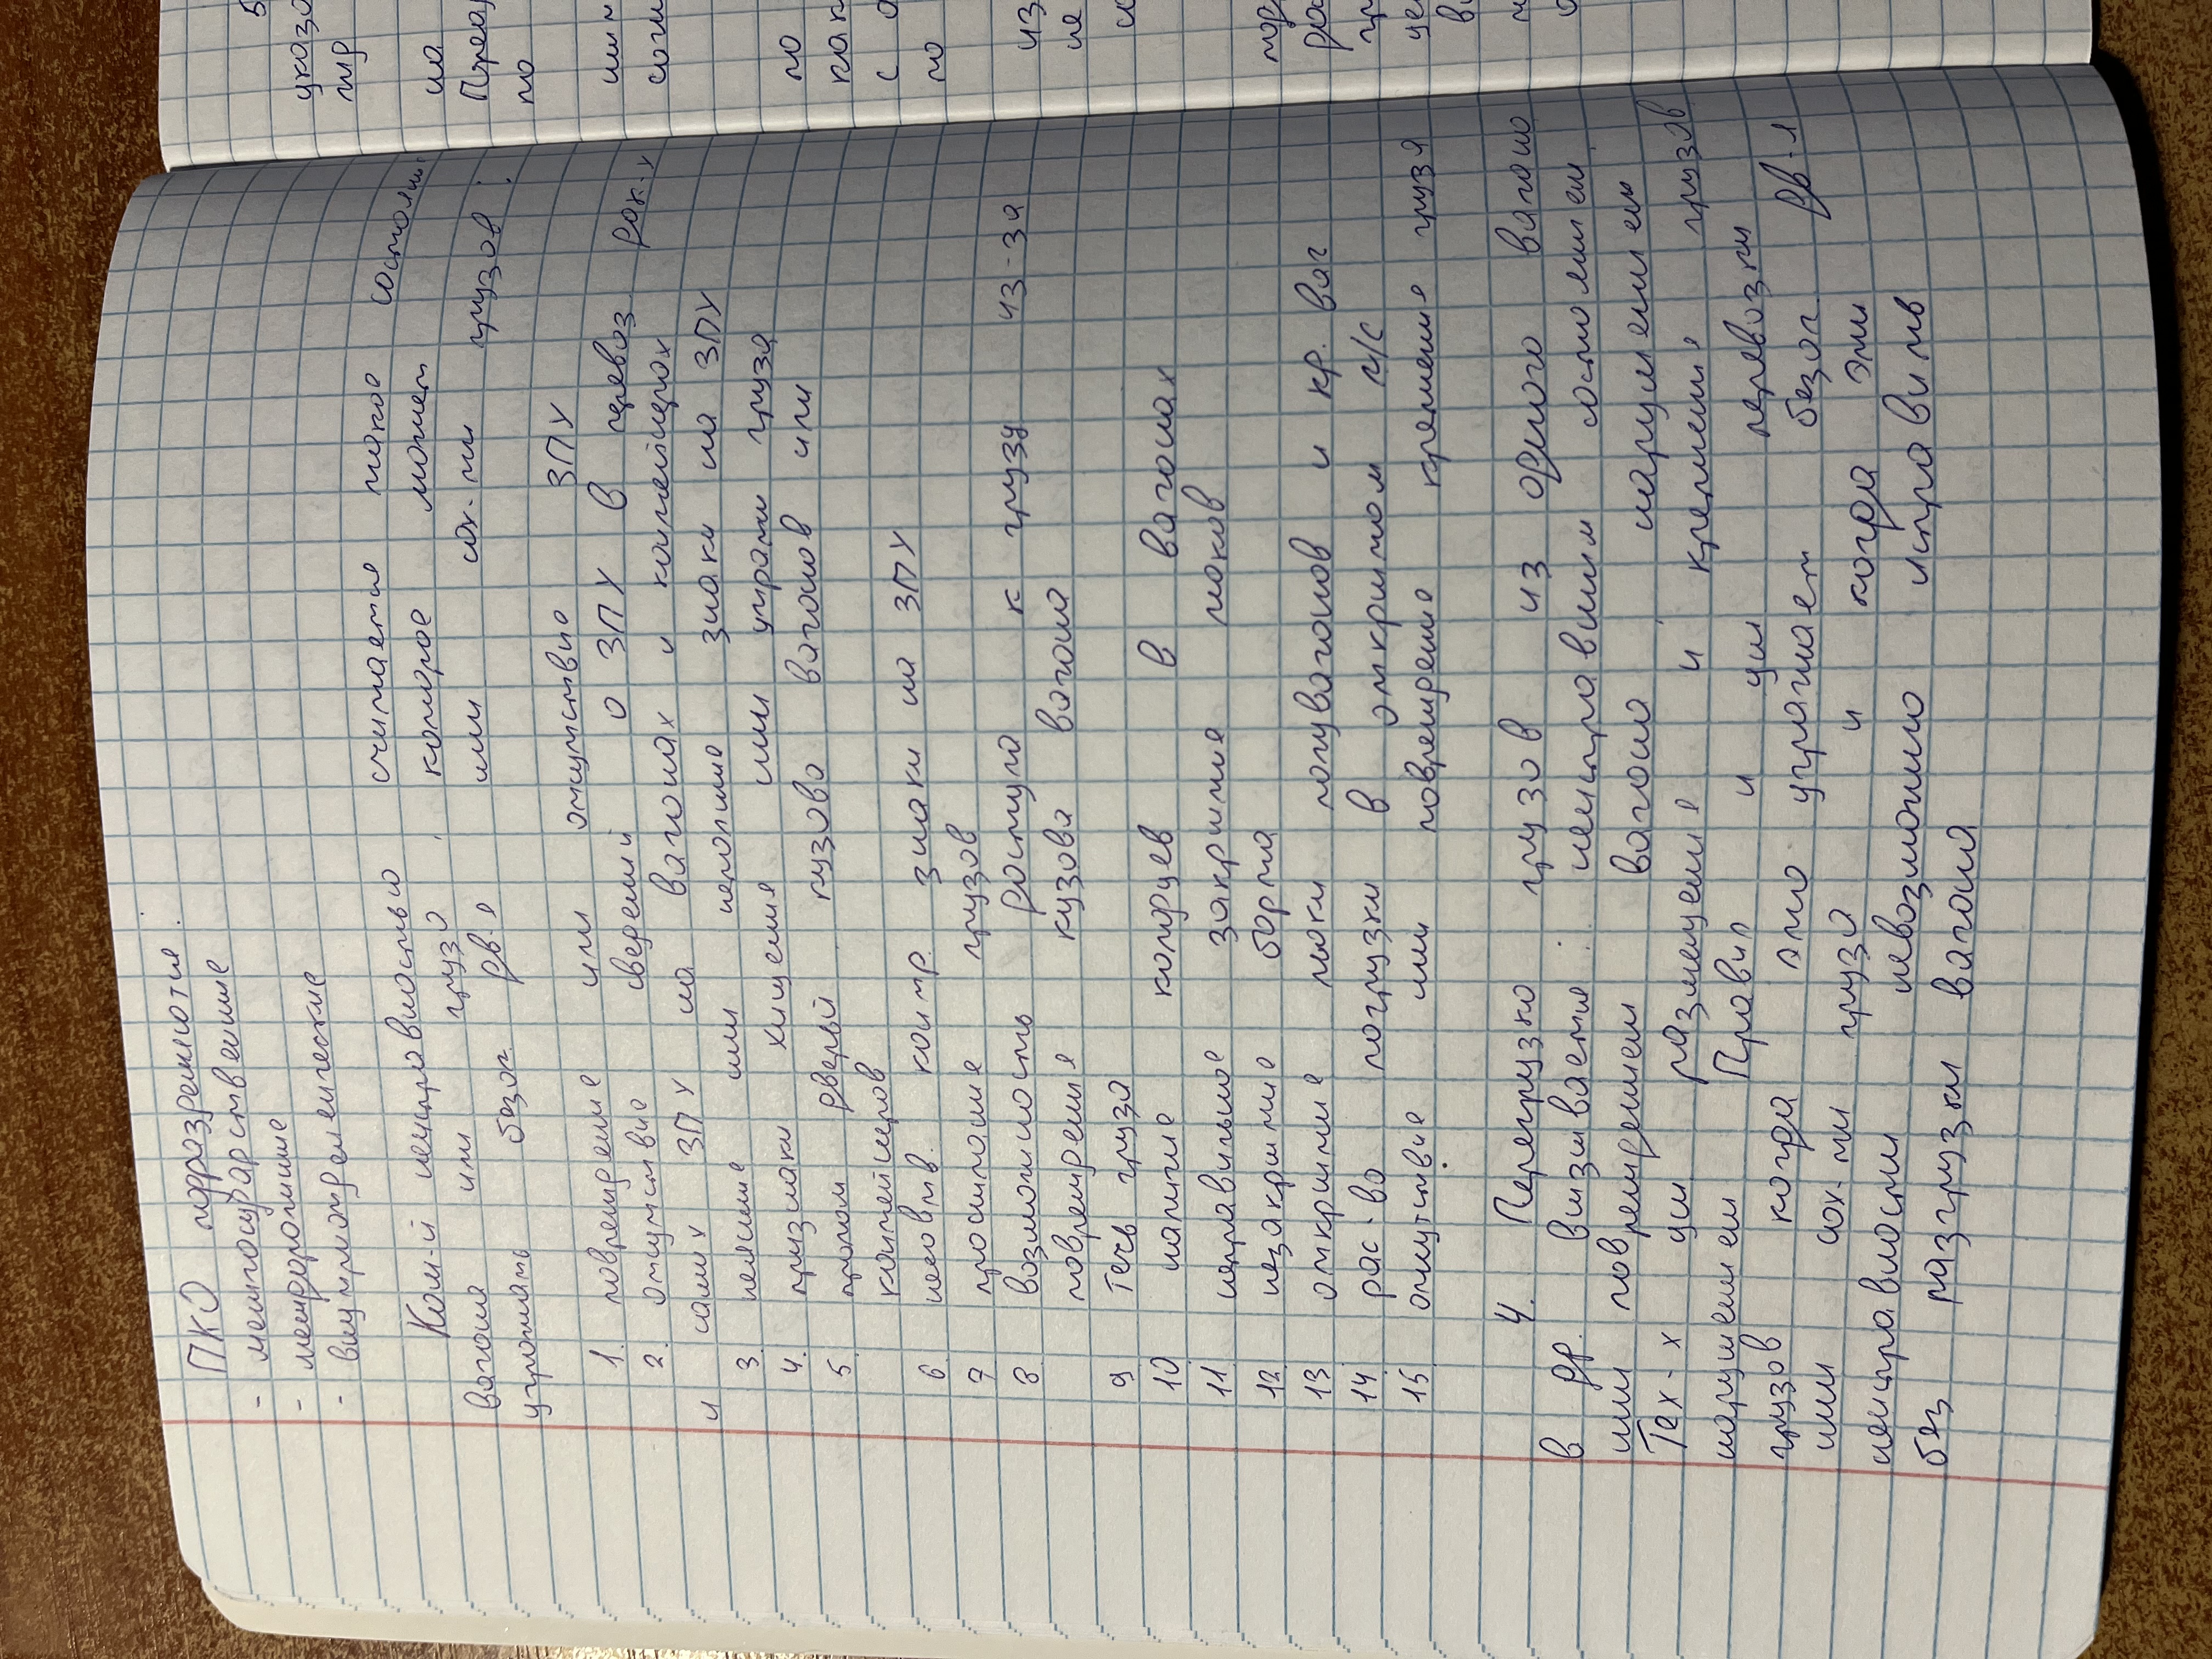 ПКО подразделяются
- межгосударственные
- междорожные
- внутридорожнические
Ком-й неисправностью считается такое состояние
вагона или груза, которое может
угрожать безоп. дв.я или сох-ти грузов:
1. повреждение или отсутствие ЗПУ
2. отсутствие сведений о ЗПУ в перевоз. док.х
и самих ЗПУ на вагонах и контейнерах
3. неясные или неполные знаки на ЗПУ
4. признаки хищения или утраты груза
5. пролом дверей кузова вагонов или
контейнеров
6. несовпв. контр. знаки на ЗПУ
7. просыпание грузов
8. возможность доступа к грузу из-за
повреждения кузова вагона
9. Течь груза
10. налтие колпрцев в вагонах
11. неправильное закрытие люков
12. незакрытые борта
13. открытые люки полувагонов и кр. ваг
14. рас-во погрузки в открытом п/с
15. отсутствие или повреждение крепления груза
4. Перегрузка грузов из одного вагона
в др. вызывается: неисправным состоянием
или повреждением вагона, нарушением
Тех-х усл размещения и крепления грузов
нарушением Правил и усл перевозки
грузов когда это угрожает безоп дв-я
или сох-ти груза и когда эти
неисправности невозможно исправить
без разгрузки вагона